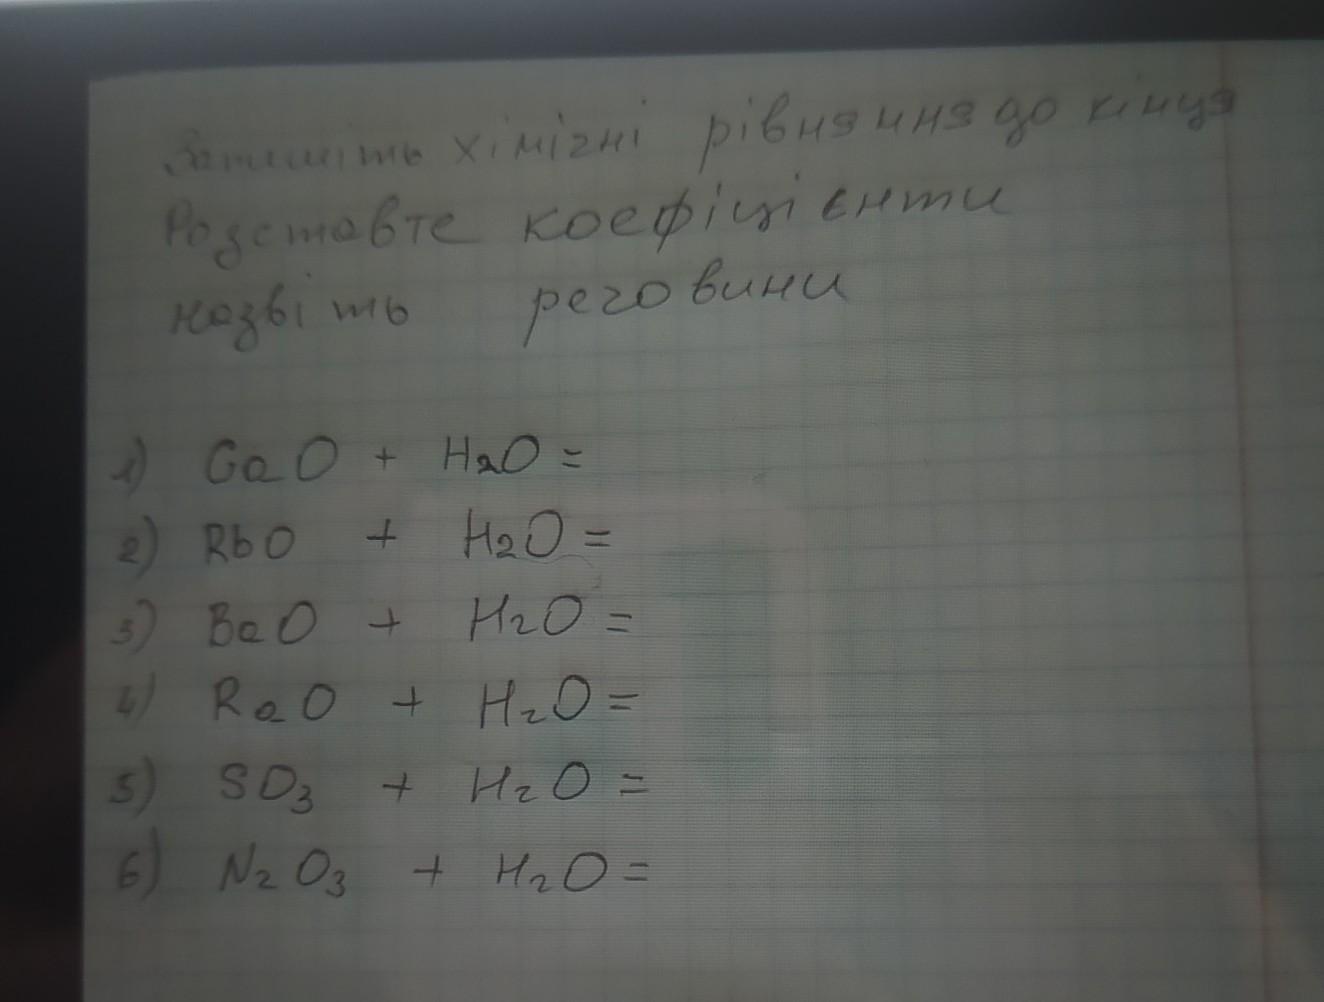 Запишіть хімічні рівняння до кінця
Розставте коефіцієнти
назвіть речовини
1) CaO + H2O =
2) RbO + H2O =
3) BaO + H2O =
4) RaO + H2O =
5) SO3 + H2O =
6) N2O3 + H2O =